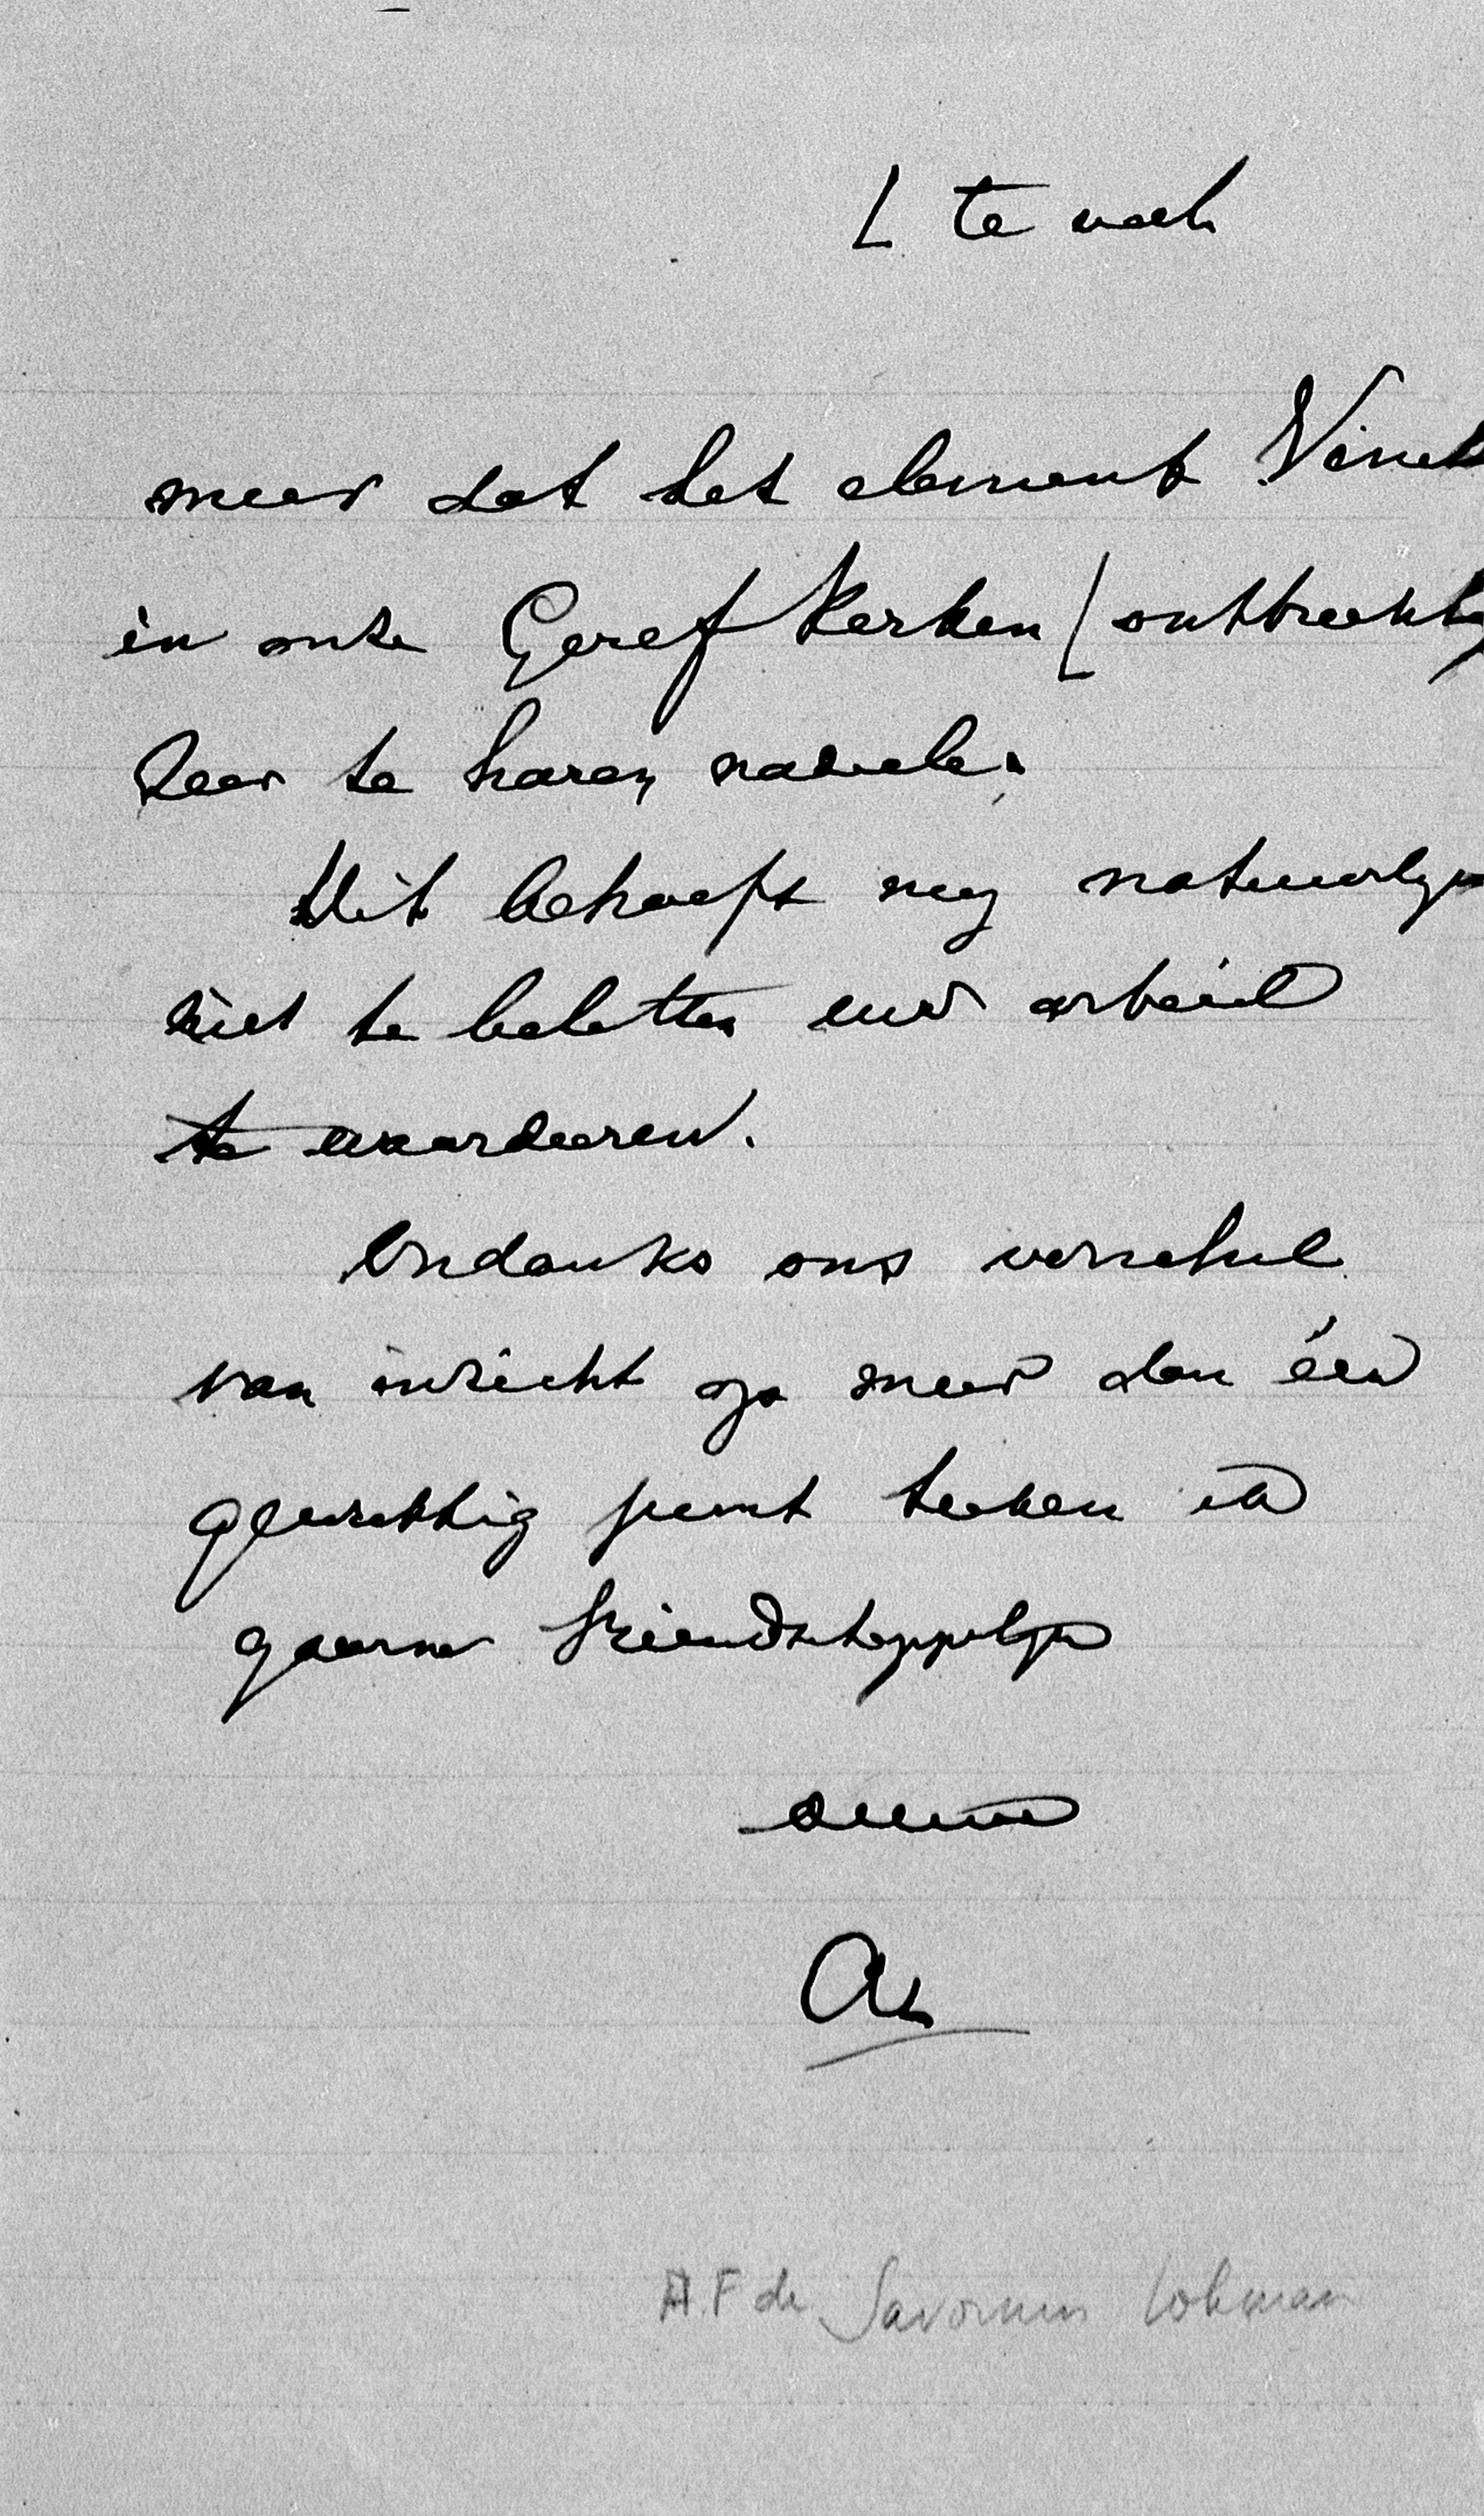 ⌊ te veel
meer dat het element Vinet
in onze Geref Kerken ⌊ ontbreekt,
zeer te haren nadeele.
Dit behoeft mij natuurlijk
niet te beletten uw arbeid
te waardeeren.
Ondanks ons verschil
van inzicht op meer dan één
gewichtig punt teeken ik
gaarne vriendschappelijk
AL
A.F de Savornin Lohman